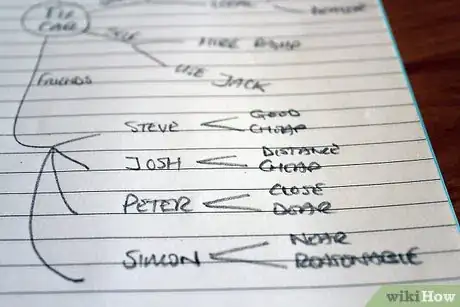 FIX
CAR
SELF
HIRE RAMP
USE JACK
FRIENDS
STEVE
GOOD
CHEAP
JOSH
DISTANCE
CHEAP
PETER
CLOSE
DEAR
SIMON
NEAR
REASONABLE
wikiHow